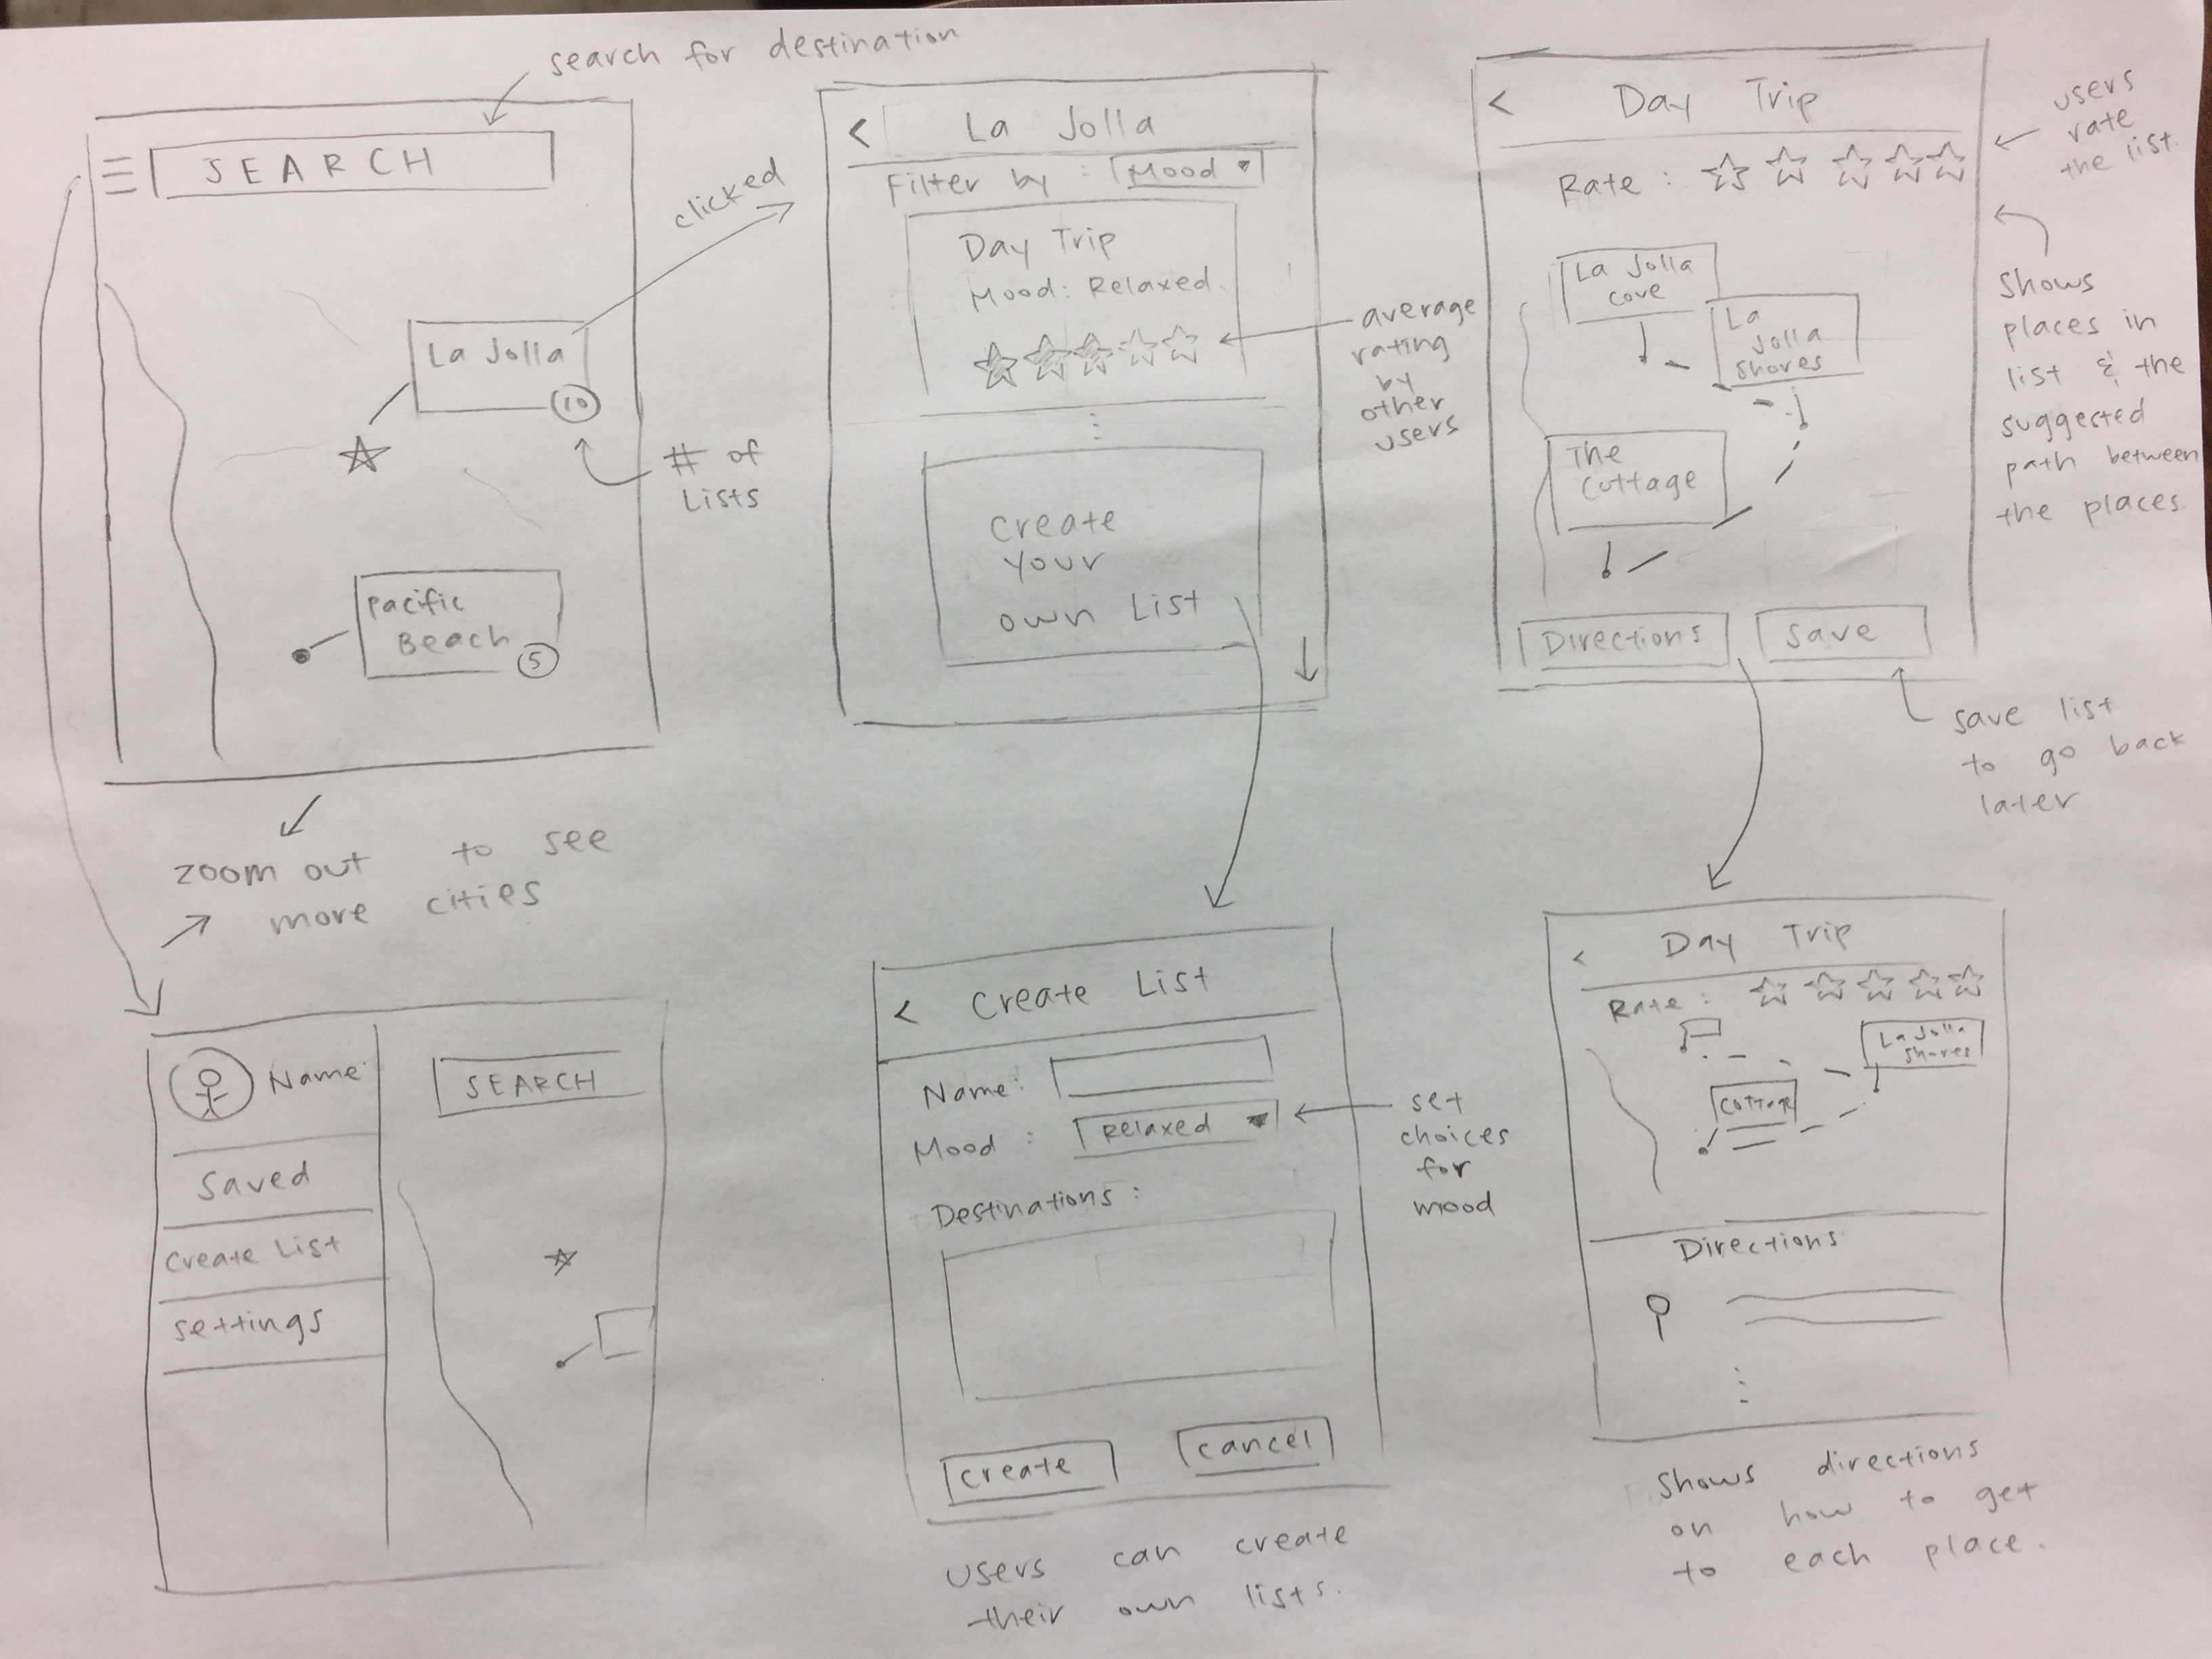 search for destination
SEARCH
La Jolla
10
# of
Lists
Pacific
Beach
5
zoom out to see
more cities
clicked
<
La Jolla
Filter by : Mood
Day Trip
Mood: Relaxed
average
rating
by
other
users
Create
Your
own List
<
Day Trip
Rate :
users
rate
the list.
La Jolla
cove
La
Jolla
Shores
The
Cottage
Directions
Save
Shows
places in
list & the
suggested
path between
the places.
save list
to go back
later
Name
SEARCH
Saved
Create List
Settings
< Create List
Name:
Mood : Relaxed
set
choices
for
mood
Destinations :
create
cancel
Users can create
their own lists.
< Day Trip
Rate :
La Jolla
Shores
Cottage
Directions
Shows directions
on how to get
to each place.